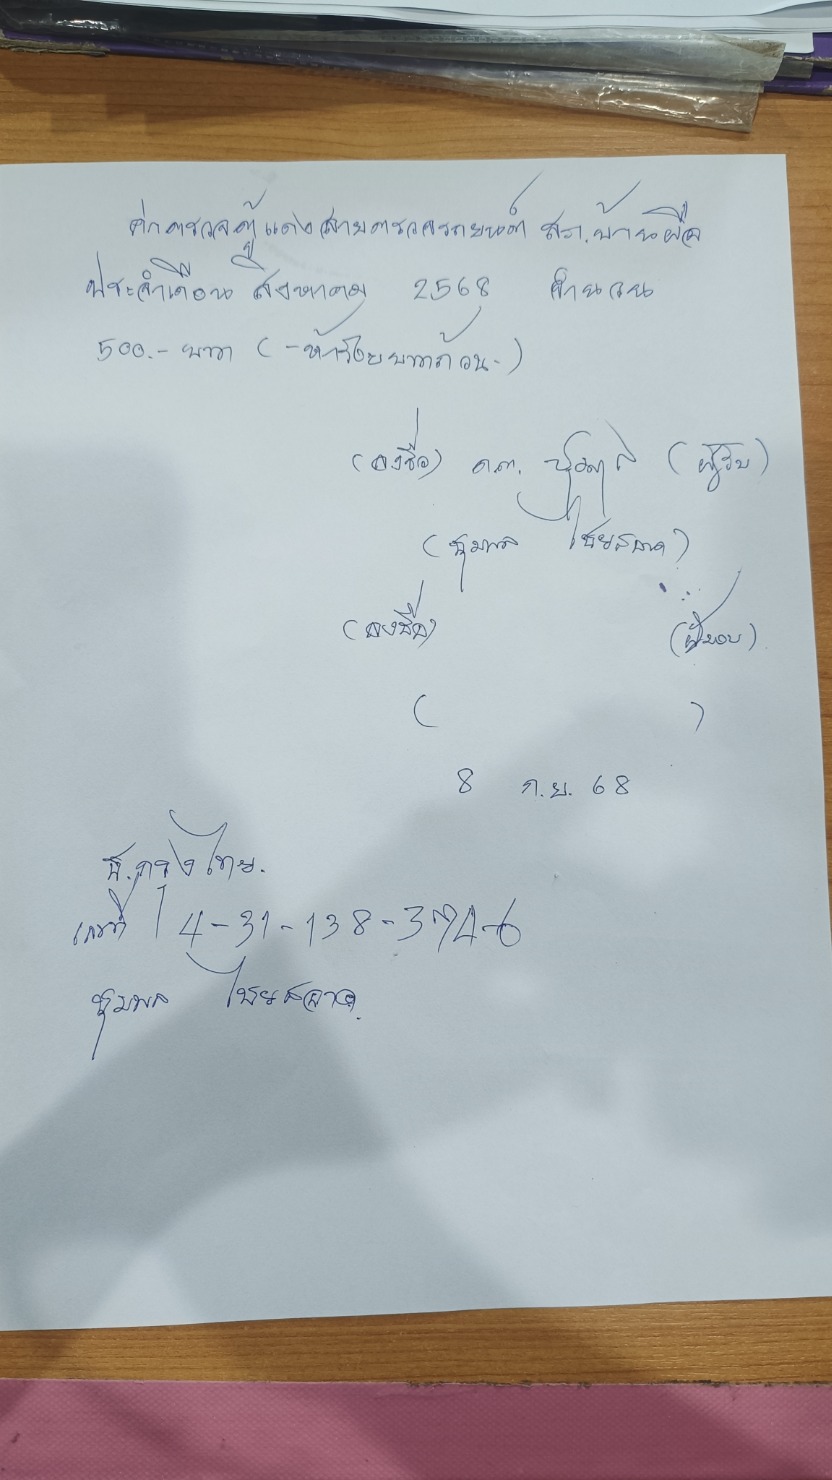 ค่าตรวจตู้แดงสายตรวจรถยนต์ สภ.บ้านผือ
ประจำเดือน สิงหาคม 2568 จำนวน
500.- บาท (-ห้าร้อยบาทถ้วน-)
(ลงชื่อ) ด.ต. (ผู้รับ)
(ชุมพล ไชยสลาด)
(ลงชื่อ) (ผู้มอบ)
( )
8 ก.ย. 68
ธ.กรุงไทย.
เลขที่ 4-31-138-374-6
ชุมพล ไชยสลาด